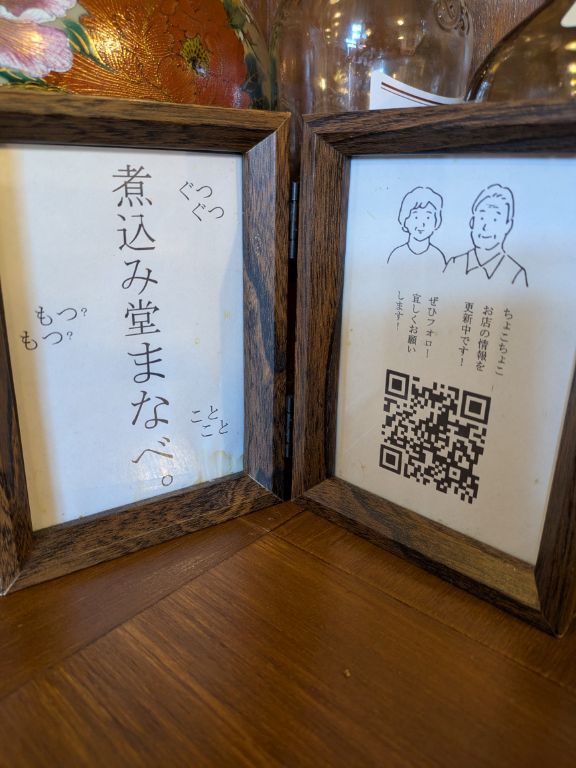 煮込み堂まなべ。
ぐつ
ぐつ
もつ?
もつ?
ことこと
ちょこちょこ
お店の情報を
更新中です!
ぜひフォロー
宜しくお願い
します!